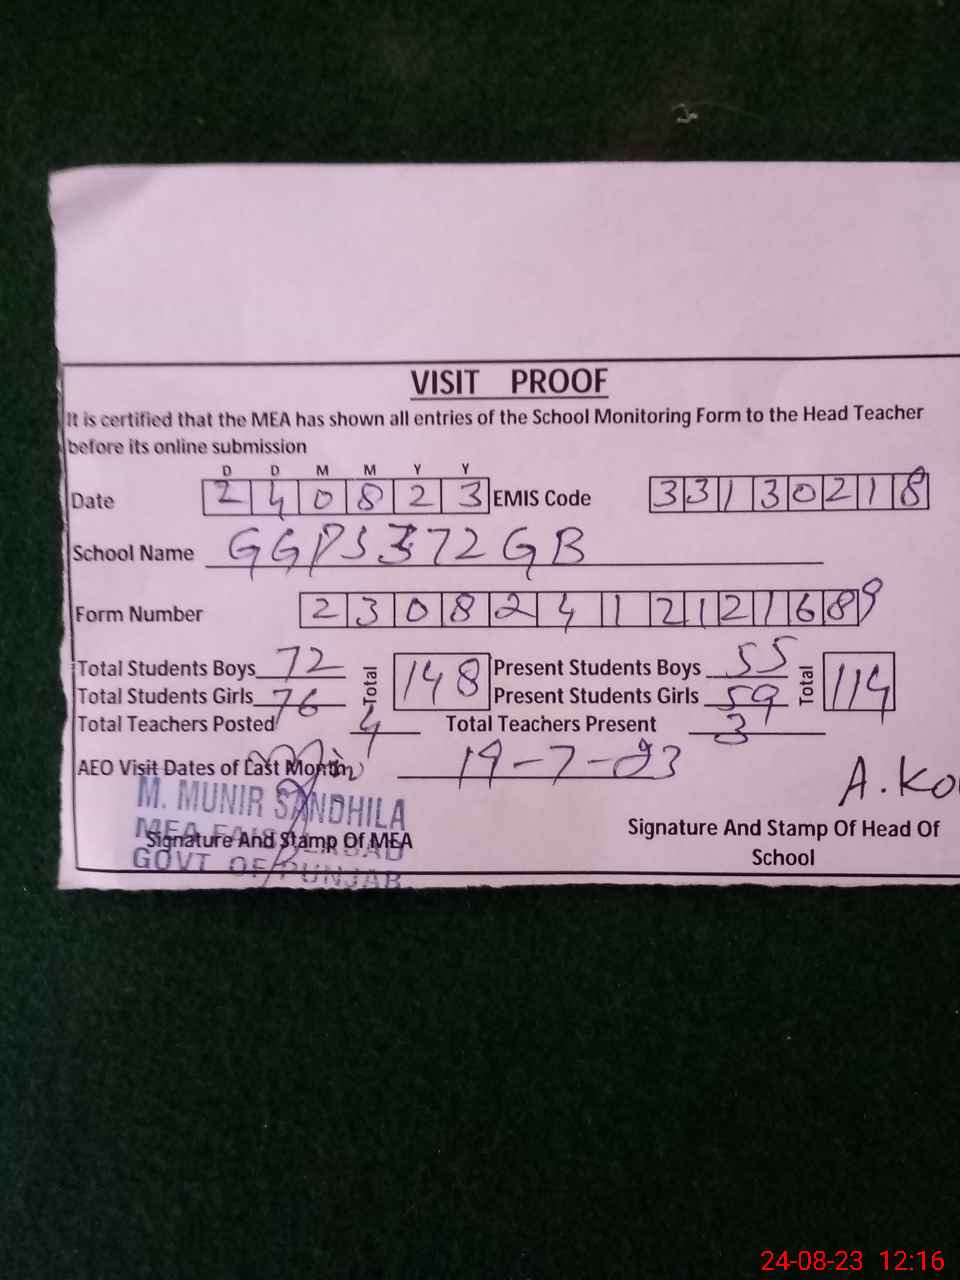 VISIT PROOF
It is certified that the MEA has shown all entries of the School Monitoring Form to the Head Teacher
before its online submission
D D M M Y Y
Date 2 4 0 8 2 3 EMIS Code 3 3 1 3 0 2 1 8
School Name GGPS 372 GB
Form Number 2 3 0 8 2 4 1 2 1 2 1 6 8 9
Total Students Boys 72 Total 148 Present Students Boys 55 Total 114
Total Students Girls 76 Present Students Girls 59
Total Teachers Posted 4 Total Teachers Present 3
AEO Visit Dates of Last Month 19-7-23
M. MUNIR SANDHILA
A. Ko
MEA FAISALABAD
Signature And Stamp Of MEA Signature And Stamp Of Head Of
School
GOVT OF PUNJAB
24-08-23 12:16